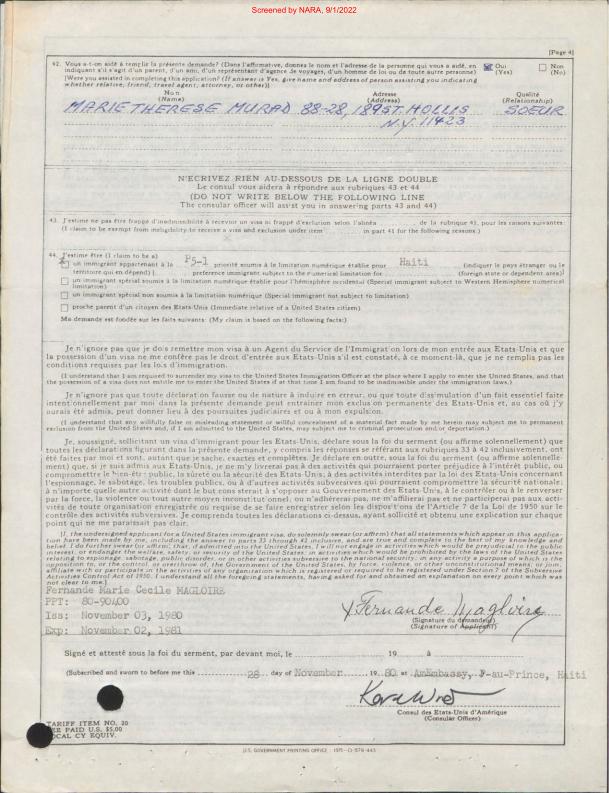 Screened by NARA, 9/1/2022
[Page 4]
42. Vous a-t-on aidé à remplir la présente demande? (Dans l'affirmative, donnez le nom et l'adresse de la personne qui vous a aidé, en
indiquant s'il s'agit d'un parent, d'un ami, d'un représentant d'agence de voyages, d'un homme de loi ou de toute autre personne)
Oui
(Yes)
Non
(No)
[Were you assisted in completing this application? (If answer is Yes, give name and address of person assisting you indicating
whether relative, friend, travel agent, attorney, or other)]
Nom
(Name)
Adresse
(Address)
Qualité
(Relationship)
MARIE THERESE MURAD 88-28, 189 ST. HOLLIS SOEUR
N.Y. 11423
N'ECRIVEZ RIEN AU-DESSOUS DE LA LIGNE DOUBLE
Le consul vous aidera à répondre aux rubriques 43 et 44
(DO NOT WRITE BELOW THE FOLLOWING LINE
The consular officer will assist you in answering parts 43 and 44)
43. J'estime ne pas être frappé d'inadmissibilité à recevoir un visa ni frappé d'exclusion selon l'alinéa de la rubrique 41, pour les raisons suivantes:
(I claim to be exempt from ineligibility to receive a visa and exclusion under item in part 41 for the following reasons.)
44. J'estime être (I claim to be a)
un immigrant appartenant à la P5-1 priorité soumis à la limitation numérique établie pour Haiti (indiquer le pays étranger ou le
territoire qui en dépend) ( preference immigrant subject to the numerical limitation for (foreign state or dependent area)]
un immigrant spécial soumis à la limitation numérique établie pour l'hémisphère occidental (Special immigrant subject to Western Hemisphere numerical
limitation)
un immigrant spécial non soumis à la limitation numérique (Special immigrant not subject to limitation)
proche parent d'un citoyen des Etats-Unis (Immediate relative of a United States citizen)
Ma demande est fondée sur les faits suivants: (My claim is based on the following facts:)
Je n'ignore pas que je dois remettre mon visa à un Agent du Service de l'Immigration lors de mon entrée aux Etats-Unis et que
la possession d'un visa ne me confère pas le droit d'entrée aux Etats-Unis s'il est constaté, à ce moment-là, que je ne remplis pas les
conditions requises par les lois d'immigration.
(I understand that I am required to surrender my visa to the United States Immigration Officer at the place where I apply to enter the United States, and that
the possession of a visa does not entitle me to enter the United States if at that time I am found to be inadmissible under the immigration laws.)
Je n'ignore pas que toute déclaration fausse ou de nature à induire en erreur, ou que toute dissimulation d'un fait essentiel faite
intentionnellement par moi dans la présente demande peut entraîner mon exclusion permanente des Etats-Unis et, au cas où j'y
aurais été admis, peut donner lieu à des poursuites judiciaires et ou à mon expulsion.
(I understand that any willfully false or misleading statement or willful concealment of a material fact made by me herein may subject me to permanent
exclusion from the United States and, if I am admitted to the United States, may subject me to criminal prosecution and/or deportation.)
Je, soussigné, sollicitant un visa d'immigrant pour les Etats-Unis, déclare sous la foi du serment (ou affirme solennellement) que
toutes les déclarations figurant dans la présente demande, y compris les réponses se référant aux rubriques 33 à 42 inclusivement, ont
été faites par moi et sont, autant que je sache, exactes et complètes. Je déclare en outre, sous la foi du serment (ou affirme solennelle-
ment) que, si je suis admis aux Etats-Unis, je ne m'y livrerai pas à des activités qui pourraient porter préjudice à l'intérêt public, ou
compromettre le bien-être public, la sûreté ou la sécurité des Etats-Unis, à des activités interdites par la loi des Etats-Unis concernant
l'espionnage, le sabotage, les troubles publics, ou à d'autres activités subversives qui pourraient compromettre la sécurité nationale,
à n'importe quelle autre activité dont le but consisterait à s'opposer au Gouvernement des Etats-Unis, à le contrôler ou à le renverser
par la force, la violence ou tout autre moyen inconstitutionnel, ou n'adhérerai pas, ne m'affilierai pas et ne participerai pas aux acti-
vités de toute organisation enregistrée ou requise de se faire enregistrer selon les dispositions de l'Article 7 de la Loi de 1950 sur le
contrôle des activités subversives. Je comprends toutes les déclarations ci-dessus, ayant sollicité et obtenu une explication sur chaque
point qui ne me paraissait pas clair.
[I, the undersigned applicant for a United States immigrant visa, do solemnly swear (or affirm) that all statements which appear in this applica-
tion have been made by me, including the answers to parts 33 through 42 inclusive, and are true and complete to the best of my knowledge and
belief. I do further swear (or affirm) that, if admitted into the United States, I will not engage in activities which would be prejudicial to the public
interest, or endanger the welfare, safety, or security of the United States; in activities which would be prohibited by the laws of the United States
relating to espionage, sabotage, public disorder, or in other activities subversive to the national security; in any activity a purpose of which is the
opposition to, or the control, or overthrow of, the Government of the United States, by force, violence, or other unconstitutional means; or join,
affiliate with or participate in the activities of any organization which is registered or required to be registered under Section 7 of the Subversive
Activities Control Act of 1950. I understand all the foregoing statements, having asked for and obtained an explanation on every point which was
not clear to me.]
Fernande Marie Cecile MAGLOIRE
PPT: 80-90400
Iss: November 03, 1980
Exp: November 02, 1981
X Fernande Magloire
(Signature du demandeur)
(Signature of Applicant)
Signé et attesté sous la foi du serment, par devant moi, le 19 à
(Subscribed and sworn to before me this 28 day of November 19 80 at AmEmbassy, P-au-Prince, Haiti
Consul des Etats-Unis d'Amérique
(Consular Officer)
TARIFF ITEM NO. 20
FEE PAID U.S. $5.00
LOCAL CY EQUIV.
U.S. GOVERNMENT PRINTING OFFICE : 1975-O-579-443